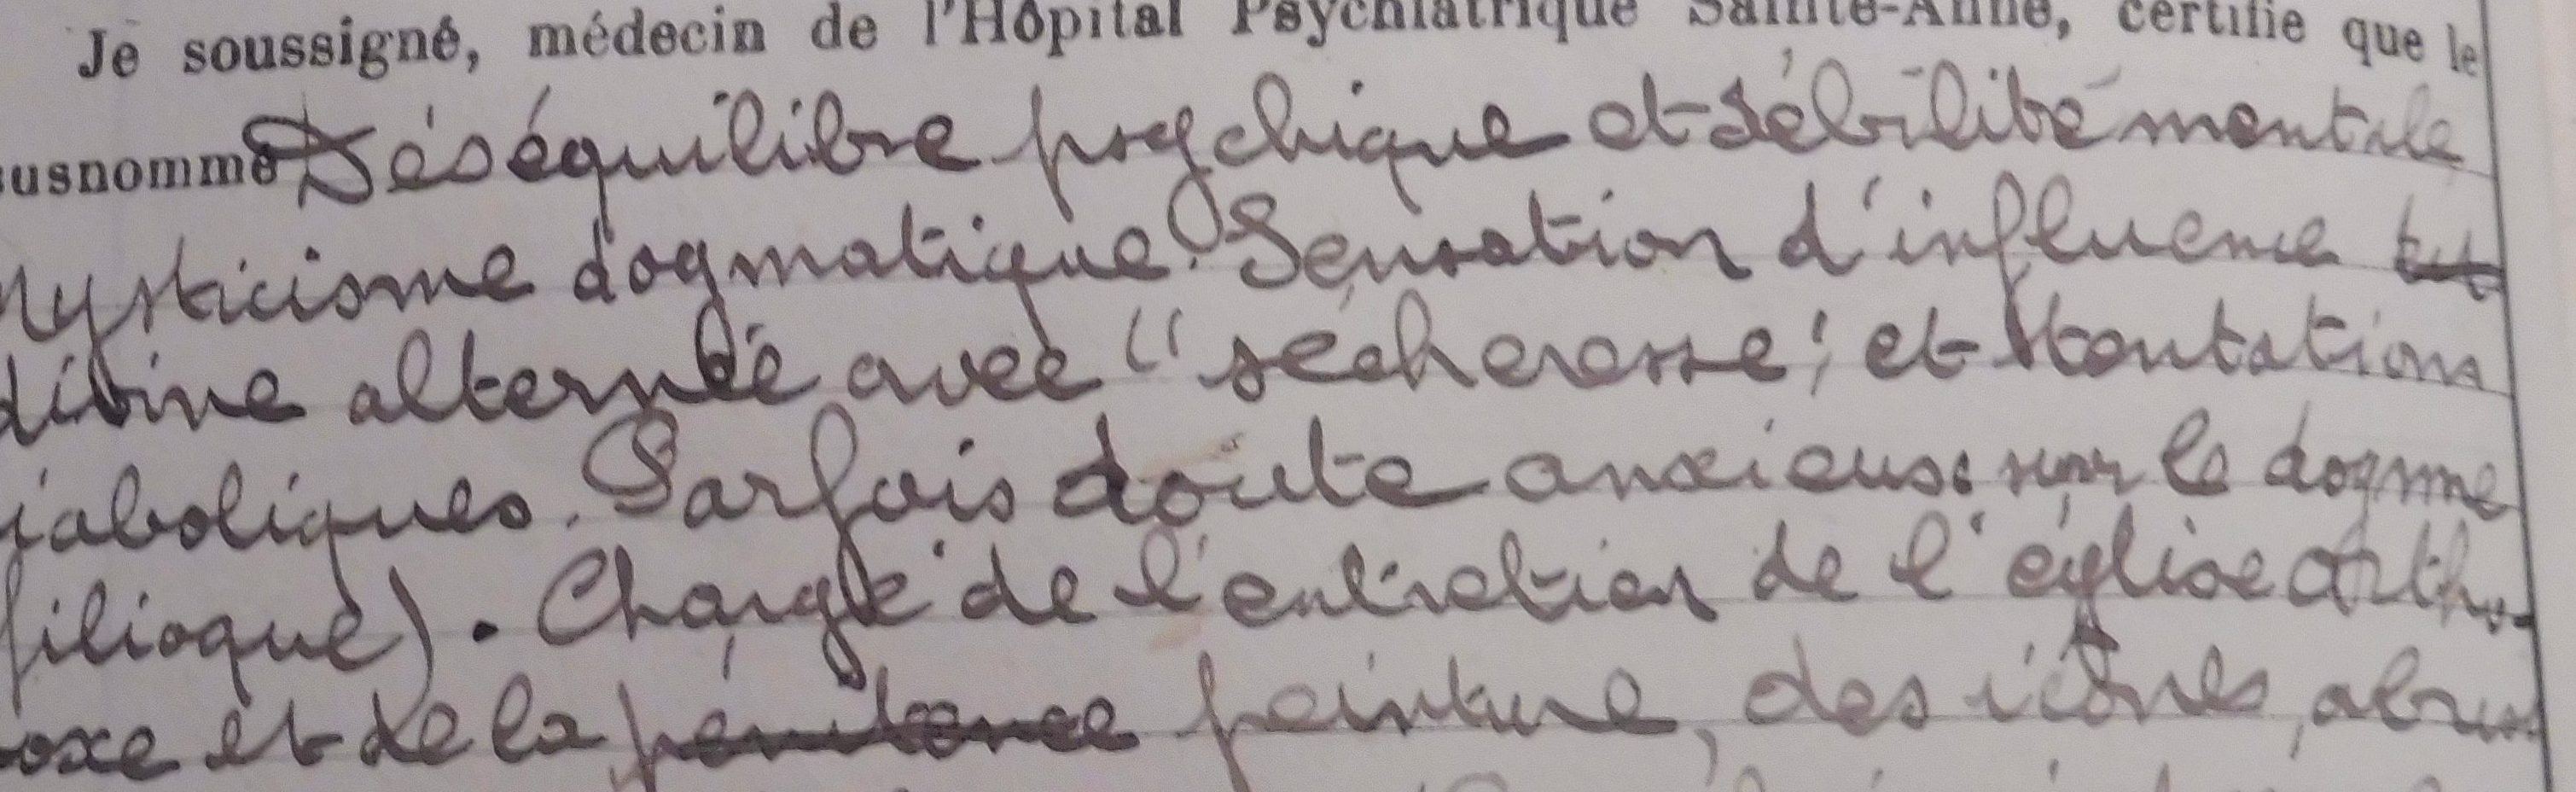 Je soussigné, médecin de l'Hôpital Psychiatrique Sainte-Anne, certifie que le
usnommé Déséquilibre psychique et débilité mentale
Mysticisme dogmatique. Sensation d'influence
divine alternée avec "sécheresse" et tentations
iaboliques. Parfois doute anxieux sur le dogme
filioque). Chargé de l'entretien de l'église ortho-
oxe et de la peinture, des icônes, abus